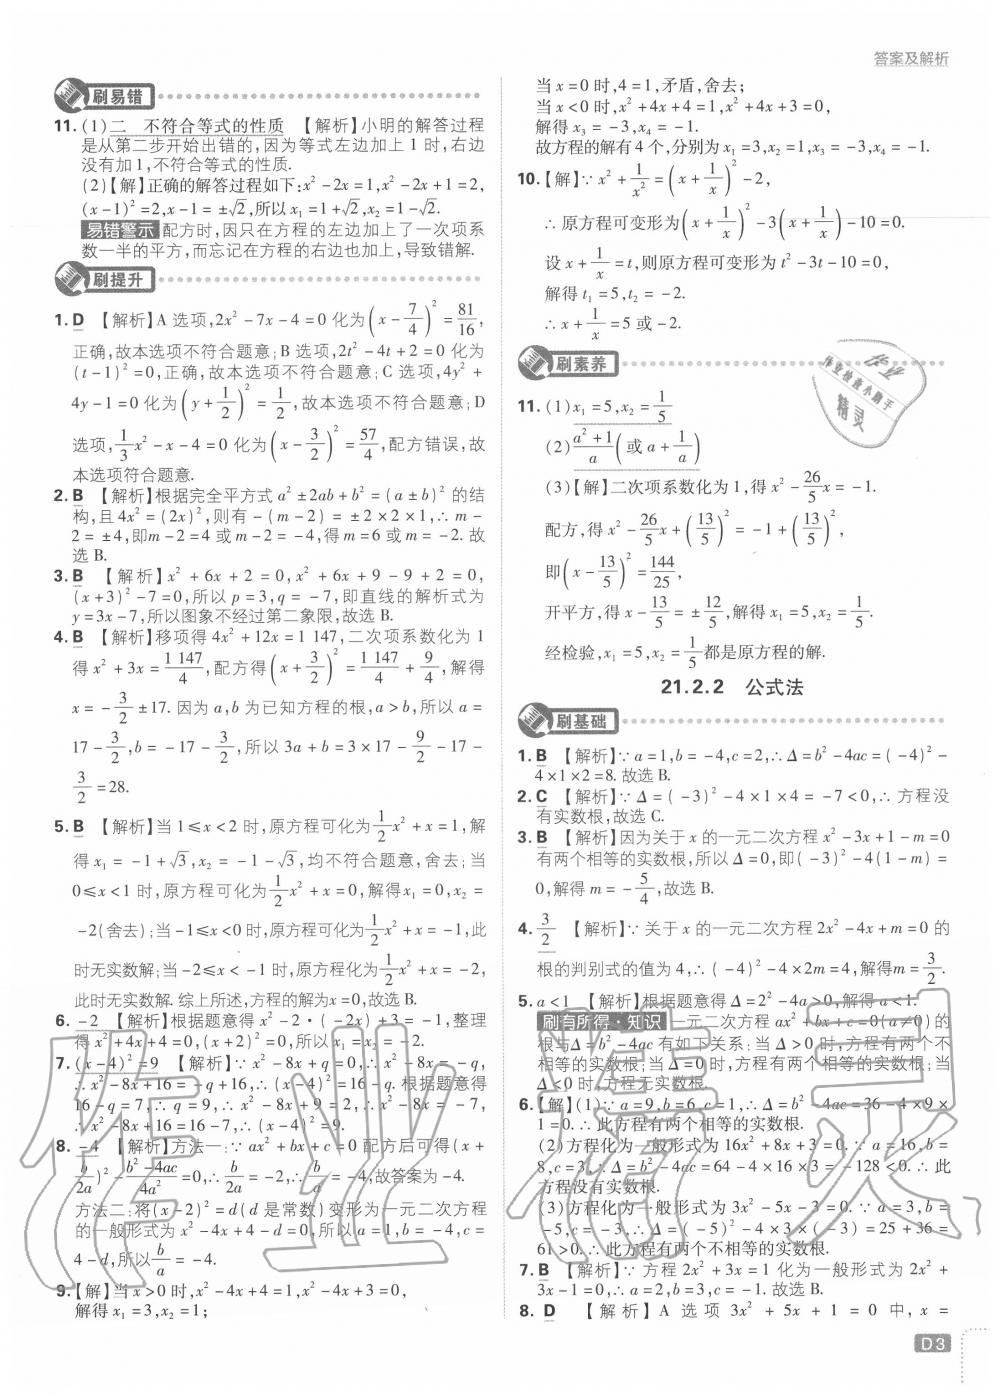 答案及解析
刷易错
11. (1)二 不符合等式的性质 【解析】小明的解答过程
是从第二步开始出错的,因为等式左边加上 1 时,右边
没有加 1,不符合等式的性质.
(2)【解】正确的解答过程如下:x²-2x=1,x²-2x+1=2,
(x-1)²=2,x-1=±√2,所以x₁=1+√2,x₂=1-√2.
易错警示 配方时,因只在方程的左边加上了一次项系
数一半的平方,而忘记在方程的右边也加上,导致错解.
刷提升
1. D 【解析】A 选项,2x²-7x-4=0 化为(x-7/4)²=81/16,
正确,故本选项不符合题意;B 选项,2t²-4t+2=0 化为
(t-1)²=0,正确,故本选项不符合题意;C 选项,4y²+
4y-1=0 化为(y+1/2)²=1/2,故本选项不符合题意;D
选项,1/3x²-x-4=0 化为(x-3/2)²=57/4,配方错误,故
本选项符合题意.
2. B 【解析】根据完全平方式 a²±2ab+b²=(a±b)² 的结
构,且 4x²=(2x)²,则有-(m-2)=±2×2×1,∴m-
2=±4,即m-2=4 或 m-2=-4,得 m=6 或 m=-2. 故
选 B.
3. B 【解析】x²+6x+2=0,x²+6x+9-9+2=0,
(x+3)²-7=0,所以 p=3,q=-7,即直线的解析式为
y=3x-7,所以图象不经过第二象限,故选 B.
4. B 【解析】移项得 4x²+12x=1 147,二次项系数化为 1
得 x²+3x=1 147/4,配方得(x+3/2)²=1 147/4+9/4,解得
x=-3/2±17. 因为 a,b 为已知方程的根,a>b,所以 a=
17-3/2,b=-17-3/2,所以 3a+b=3×17-9/2-17-
3/2=28.
5. B 【解析】当 1≤x<2 时,原方程可化为1/2x²+x=1,解
得 x₁=-1+√3,x₂=-1-√3,均不符合题意,舍去;当
0≤x<1 时,原方程可化为1/2x²+x=0,解得x₁=0,x₂=
-2(舍去);当-1≤x<0 时,原方程可化为1/2x²+x=-1,此
时无实数解;当-2≤x<-1 时,原方程化为1/2x²+x=-2,
此时无实数解. 综上所述,方程的解为x=0,故选 B.
6. -2 【解析】根据题意得 x²-2·(-2x)+3=-1,整理
得 x²+4x+4=0,(x+2)²=0,所以 x₁=x₂=-2.
7. (x-4)²=9 【解析】∵x²-8x+q=0,∴x²-8x=-q,
∴x²-8x+16=-q+16,∴(x-4)²=16-q. 根据题意得
16-q=7,∴q=9,∴x²-8x+9=2,∴x²-8x=-7,
∴x²-8x+16=16-7,∴(x-4)²=9.
8. -4 【解析】方法一:∵ax²+bx+c=0 配方后可得(x+
b/2a)²-(b²-4ac)/4a²=0,∴b/2a=-2,∴b/a=-4,故答案为-4.
方法二:将(x-2)²=d(d 是常数)变形为一元二次方程
的一般形式为 x²-4x+4-d=0,所以 a=1,b=-4,c=
4-d,所以b/a=-4.
9.【解】当 x>0 时,x²-4x+4=1,x²-4x+3=0,
解得 x₁=3,x₂=1;
当 x=0 时,4=1,矛盾,舍去;
当 x<0 时,x²+4x+4=1,x²+4x+3=0,
解得 x₃=-3,x₄=-1.
故方程的解有 4 个,分别为 x₁=3,x₂=1,x₃=-3,x₄=-1.
10.【解】∵x²+1/x²=(x+1/x)²-2,
∴原方程可变形为(x+1/x)²-3(x+1/x)-10=0.
设 x+1/x=t,则原方程可变形为 t²-3t-10=0,
解得 t₁=5,t₂=-2.
∴x+1/x=5 或-2.
刷素养
作业
作业检查小助手
精灵
11. (1)x₁=5,x₂=1/5
(2)(a²+1)/a(或 a+1/a)
(3)【解】二次项系数化为 1,得 x²-26/5x=-1.
配方,得 x²-26/5x+(13/5)²=-1+(13/5)²,
即(x-13/5)²=144/25,
开平方,得 x-13/5=±12/5,解得 x₁=5,x₂=1/5.
经检验,x₁=5,x₂=1/5都是原方程的解.
21.2.2 公式法
刷基础
1. B 【解析】∵a=1,b=-4,c=2,∴Δ=b²-4ac=(-4)²-
4×1×2=8. 故选 B.
2. C 【解析】∵Δ=(-3)²-4×1×4=-7<0,∴方程没
有实数根,故选 C.
3. B 【解析】因为关于 x 的一元二次方程 x²-3x+1-m=0
有两个相等的实数根,所以 Δ=0,即(-3)²-4(1-m)=
0,解得 m=-5/4,故选 B.
4. 3/2 【解析】∵关于 x 的一元二次方程 2x²-4x+m=0 的
根的判别式的值为 4,∴(-4)²-4×2m=4,解得m=3/2.
5. a<1 【解析】根据题意得 Δ=2²-4a>0,解得 a<1.
刷有所得·知识 一元二次方程 ax²+bx+c=0(a≠0)的
根与Δ=b²-4ac 有如下关系:当 Δ>0 时,方程有两个不
相等的实数根;当 Δ=0 时,方程有两个相等的实数根;当
Δ<0 时,方程无实数根.
6.【解】(1)∵a=9,b=6,c=1,∴Δ=b²-4ac=36-4×9×
1=0.∴此方程有两个相等的实数根.
(2)方程化为一般形式为 16x²+8x+3=0.∵a=16,b=
8,c=3.∴Δ=b²-4ac=64-4×16×3=-128<0.∴此
方程没有实数根.
(3)方程化为一般形式为 3x²-5x-3=0.∵a=3,b=
-5,c=-3,∴Δ=(-5)²-4×3×(-3)=25+36=
61>0.∴此方程有两个不相等的实数根.
7. B 【解析】∵方程 2x²+3x=1 化为一般形式为 2x²+
3x-1=0,∴a=2,b=3,c=-1. 故选 B.
8. D 【解析】A 选项 3x²+5x+1=0 中,x=
作业精灵
D3